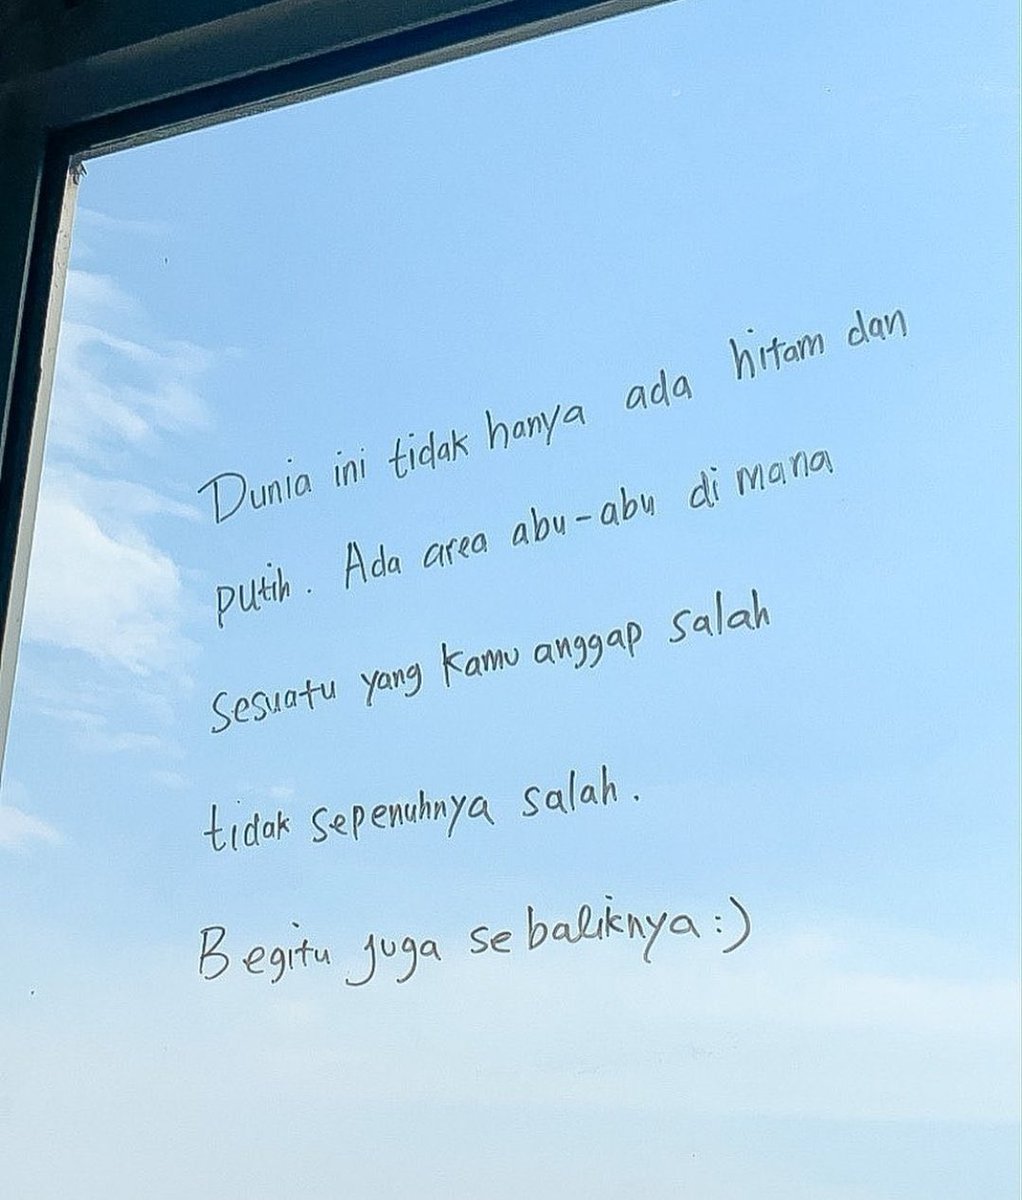 Dunia ini tidak hanya ada hitam dan
putih. Ada area abu-abu di mana
sesuatu yang kamu anggap salah
tidak sepenuhnya salah.
Begitu juga sebaliknya :)